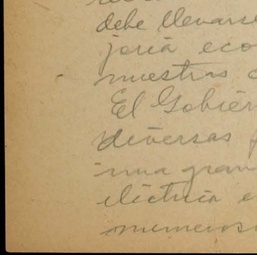 debe llevarse
joria eco
nuestras
El Gobier
diversas
una gran
eléctrica e
numeros